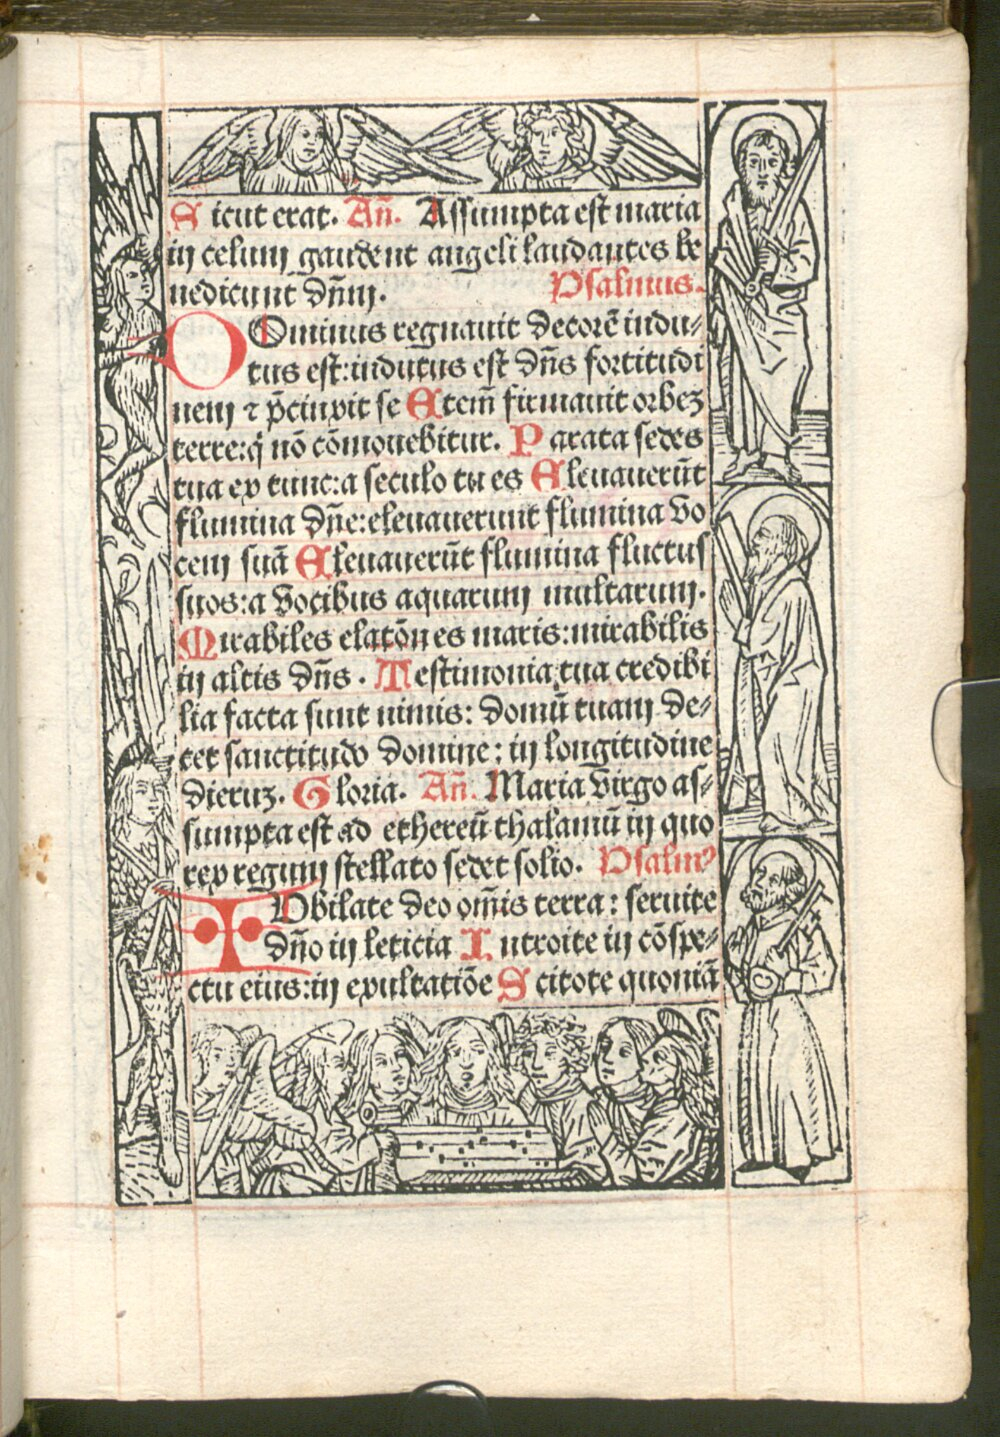 Sicut erat. Añ. Assumpta est maria
in celum gaudent angeli laudantes be
nedicunt dñm. Psalmus.
DOminus regnauit decorē indu⸗
tus est: indutus est dñs fortitudi
nem ⁊ p̄cinxit se Etem̄ firmauit orbeꝫ
terre: q̄ nō cōmouebitur. Parata sedes
tua ex tunc: a seculo tu es Eleuauerūt
flumina dñe: eleuauerunt flumina vo
cem suā Eleuauerūt flumina fluctus
suos: a vocibus aquarum multarum.
Mirabiles elatōn es maris: mirabilis
in altis dñs. Testimonia tua credibi
lia facta sunt nimis: domū tuam de⸗
cet sanctitudo domine: in longitudine
dieruꝫ. Gloria. Añ. Maria virgo as⸗
sumpta est ad ethereū thalamū in quo
rex regum stellato sedet solio. Psalmꝰ
IUbilate deo om̄is terra: seruite
dño in leticia Introite in cōspe⸗
ctu eius: in exultatiōe Scitote quoniā